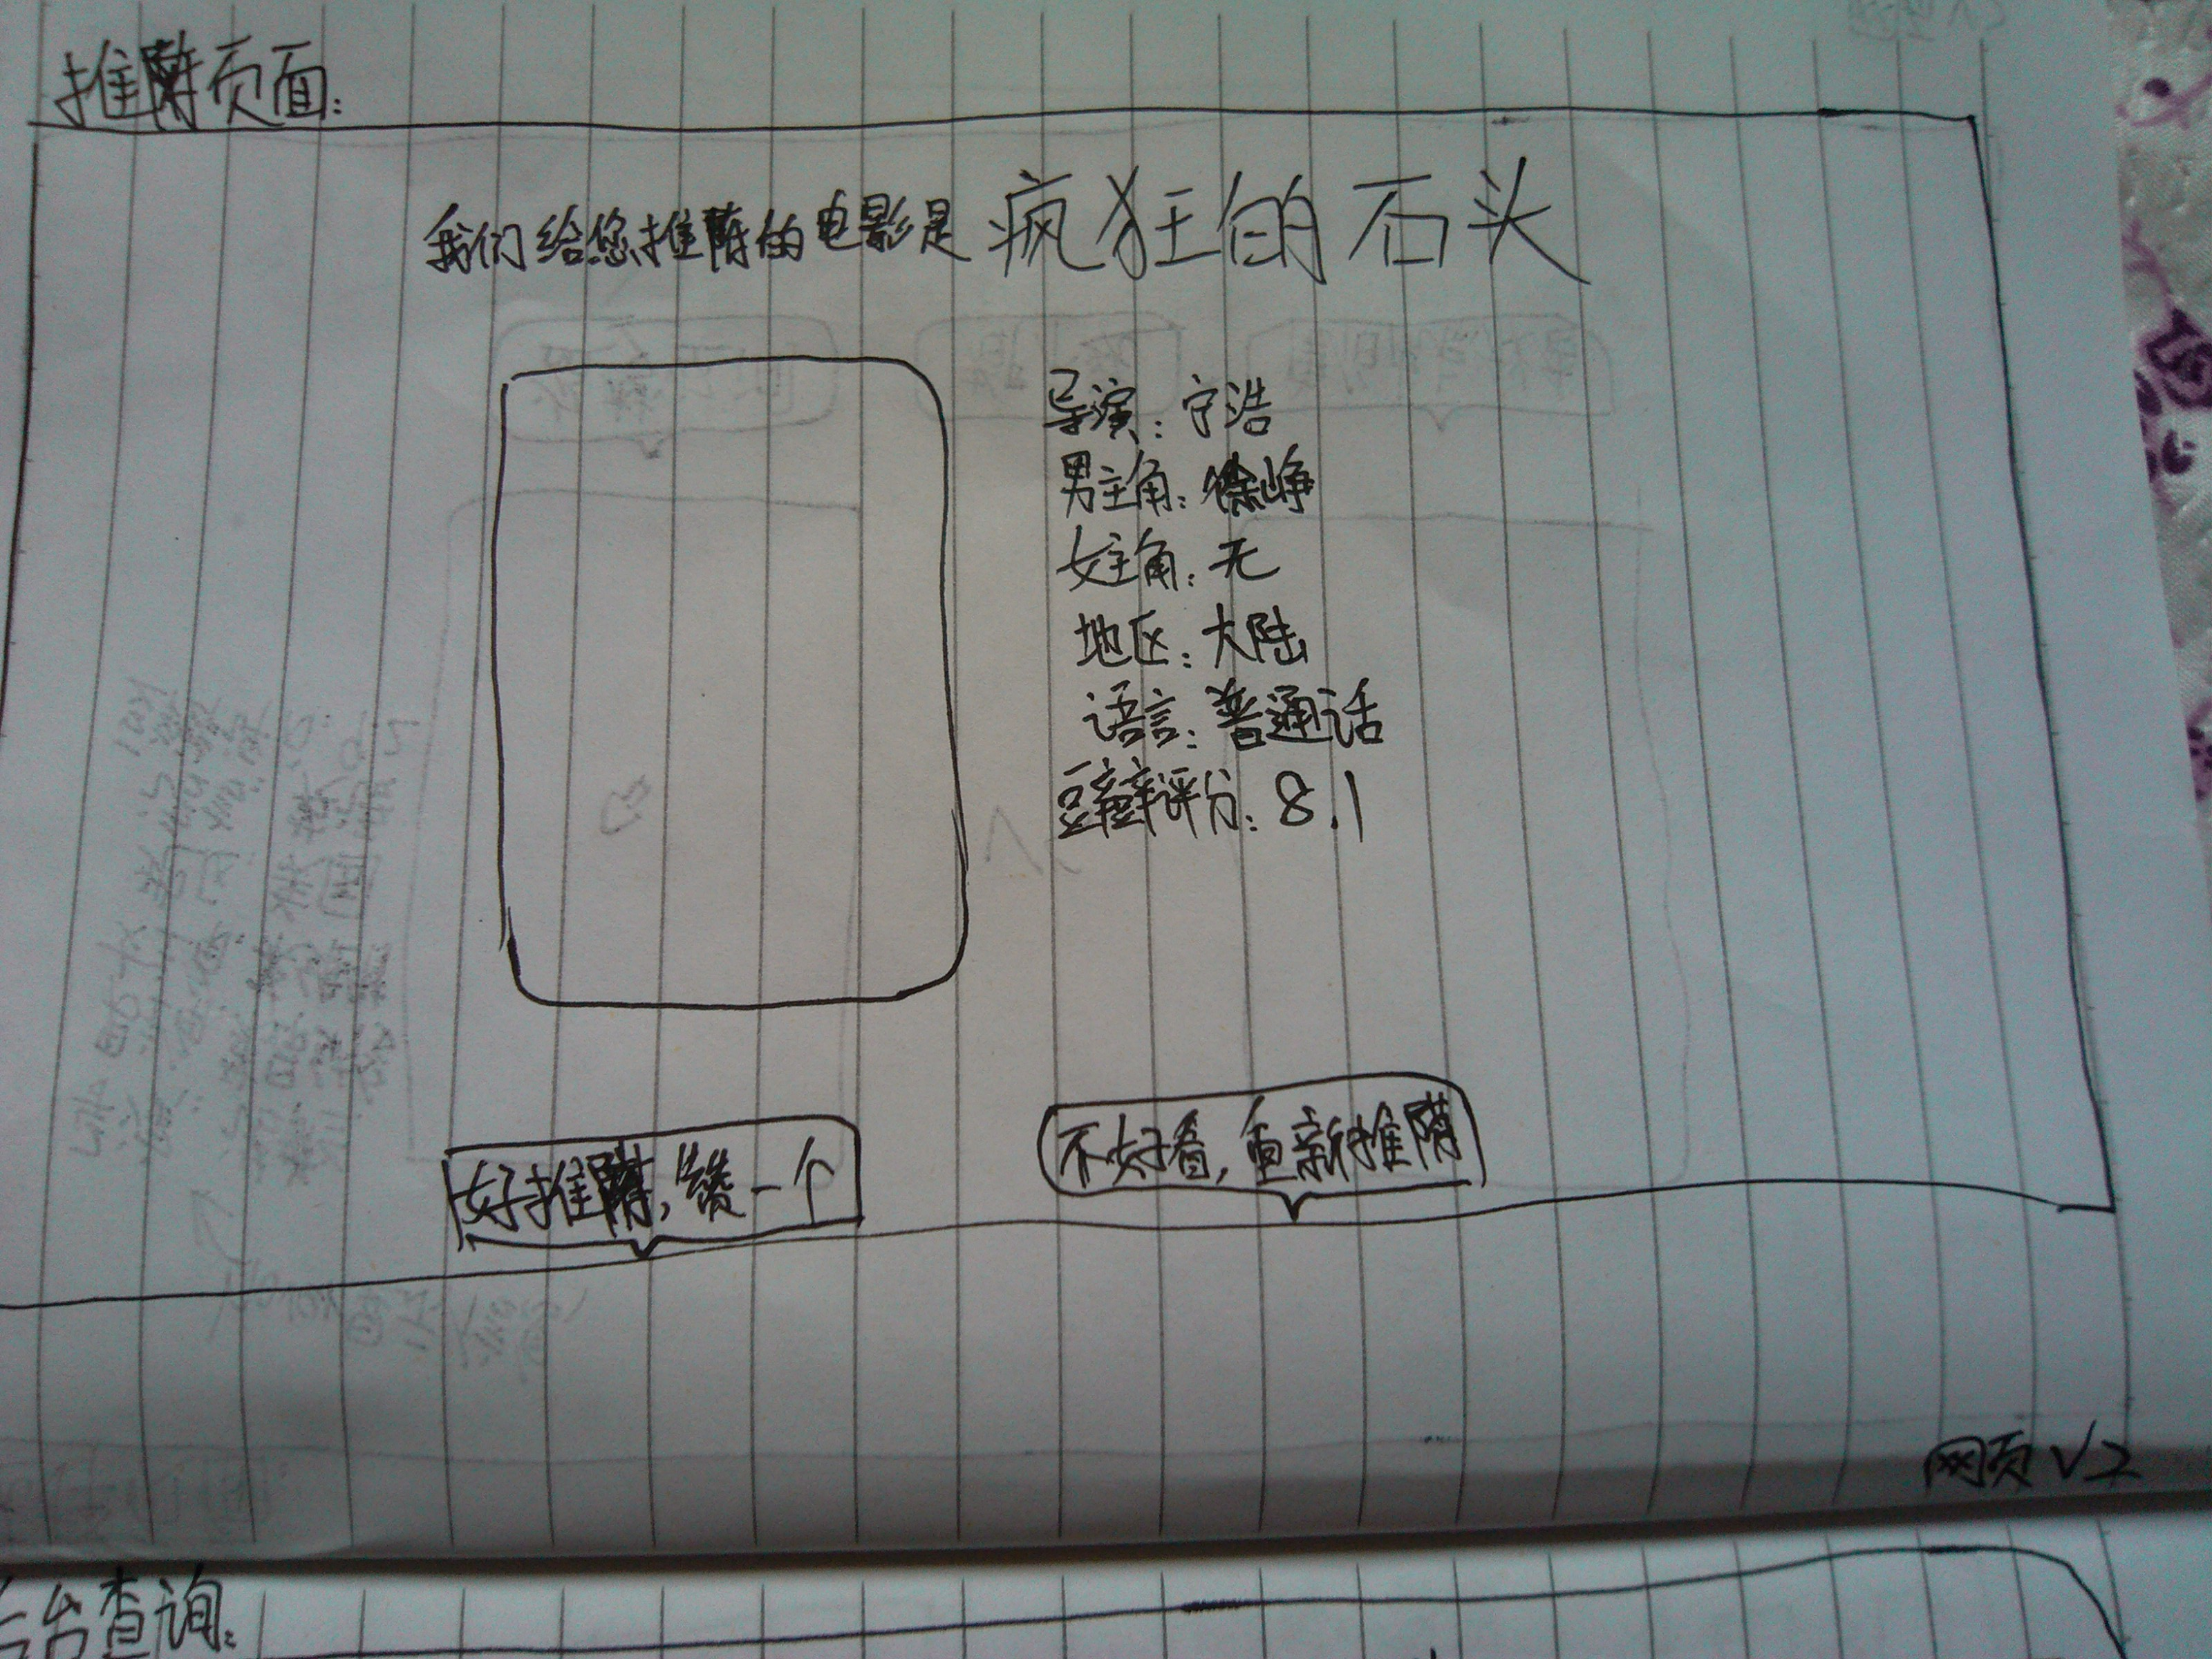 推荐页面:
我们给您推荐的电影是 疯狂的石头
导演: 宁浩
男主角: 徐峥
女主角: 无
地区: 大陆
语言: 普通话
豆瓣评分: 8.1
好推荐, 赞一个
不好看, 重新推荐
网页 V2
后台查询: